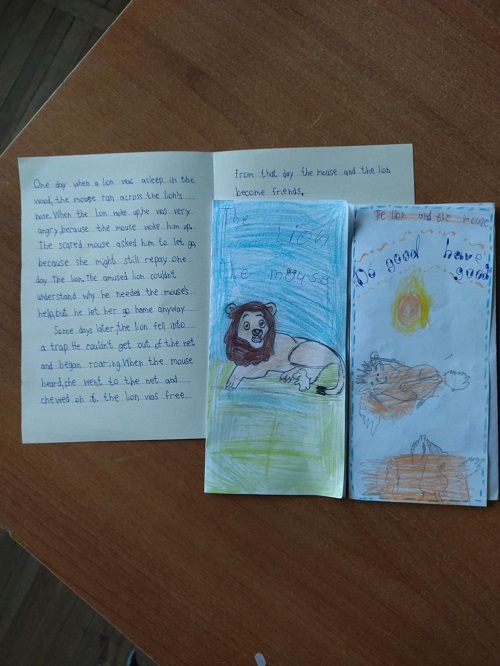 One day when a lion was asleep in the
wood, the mouse ran across the lion's
nose. When the lion woke up, he was very
angry, because the mouse woke him up.
The scared mouse asked him to let go,
because she might still repay one
day the lion. The amused lion couldn't
understand why he needed the mouse's
help, but he let her go home anyway.
Some days later, the lion fell into
a trap. He couldn't get out of the net
and began roaring. When the mouse
heard, she went to the net and
chewed on it, the lion was free.
From that day the mouse and the lion
become friends.
The Lion
the mouse
The lion and the mouse
Do good have
good